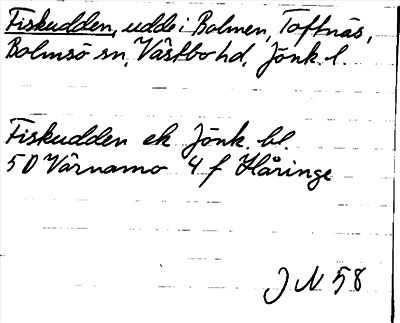 Fiskudden, udde i Bolmen, Toftnäs,
Bolmsö sn, Västbo hd, Jönk. l.
Fiskudden ek Jönk. bl.
5D Värnamo 4 f Håringe
J N 58